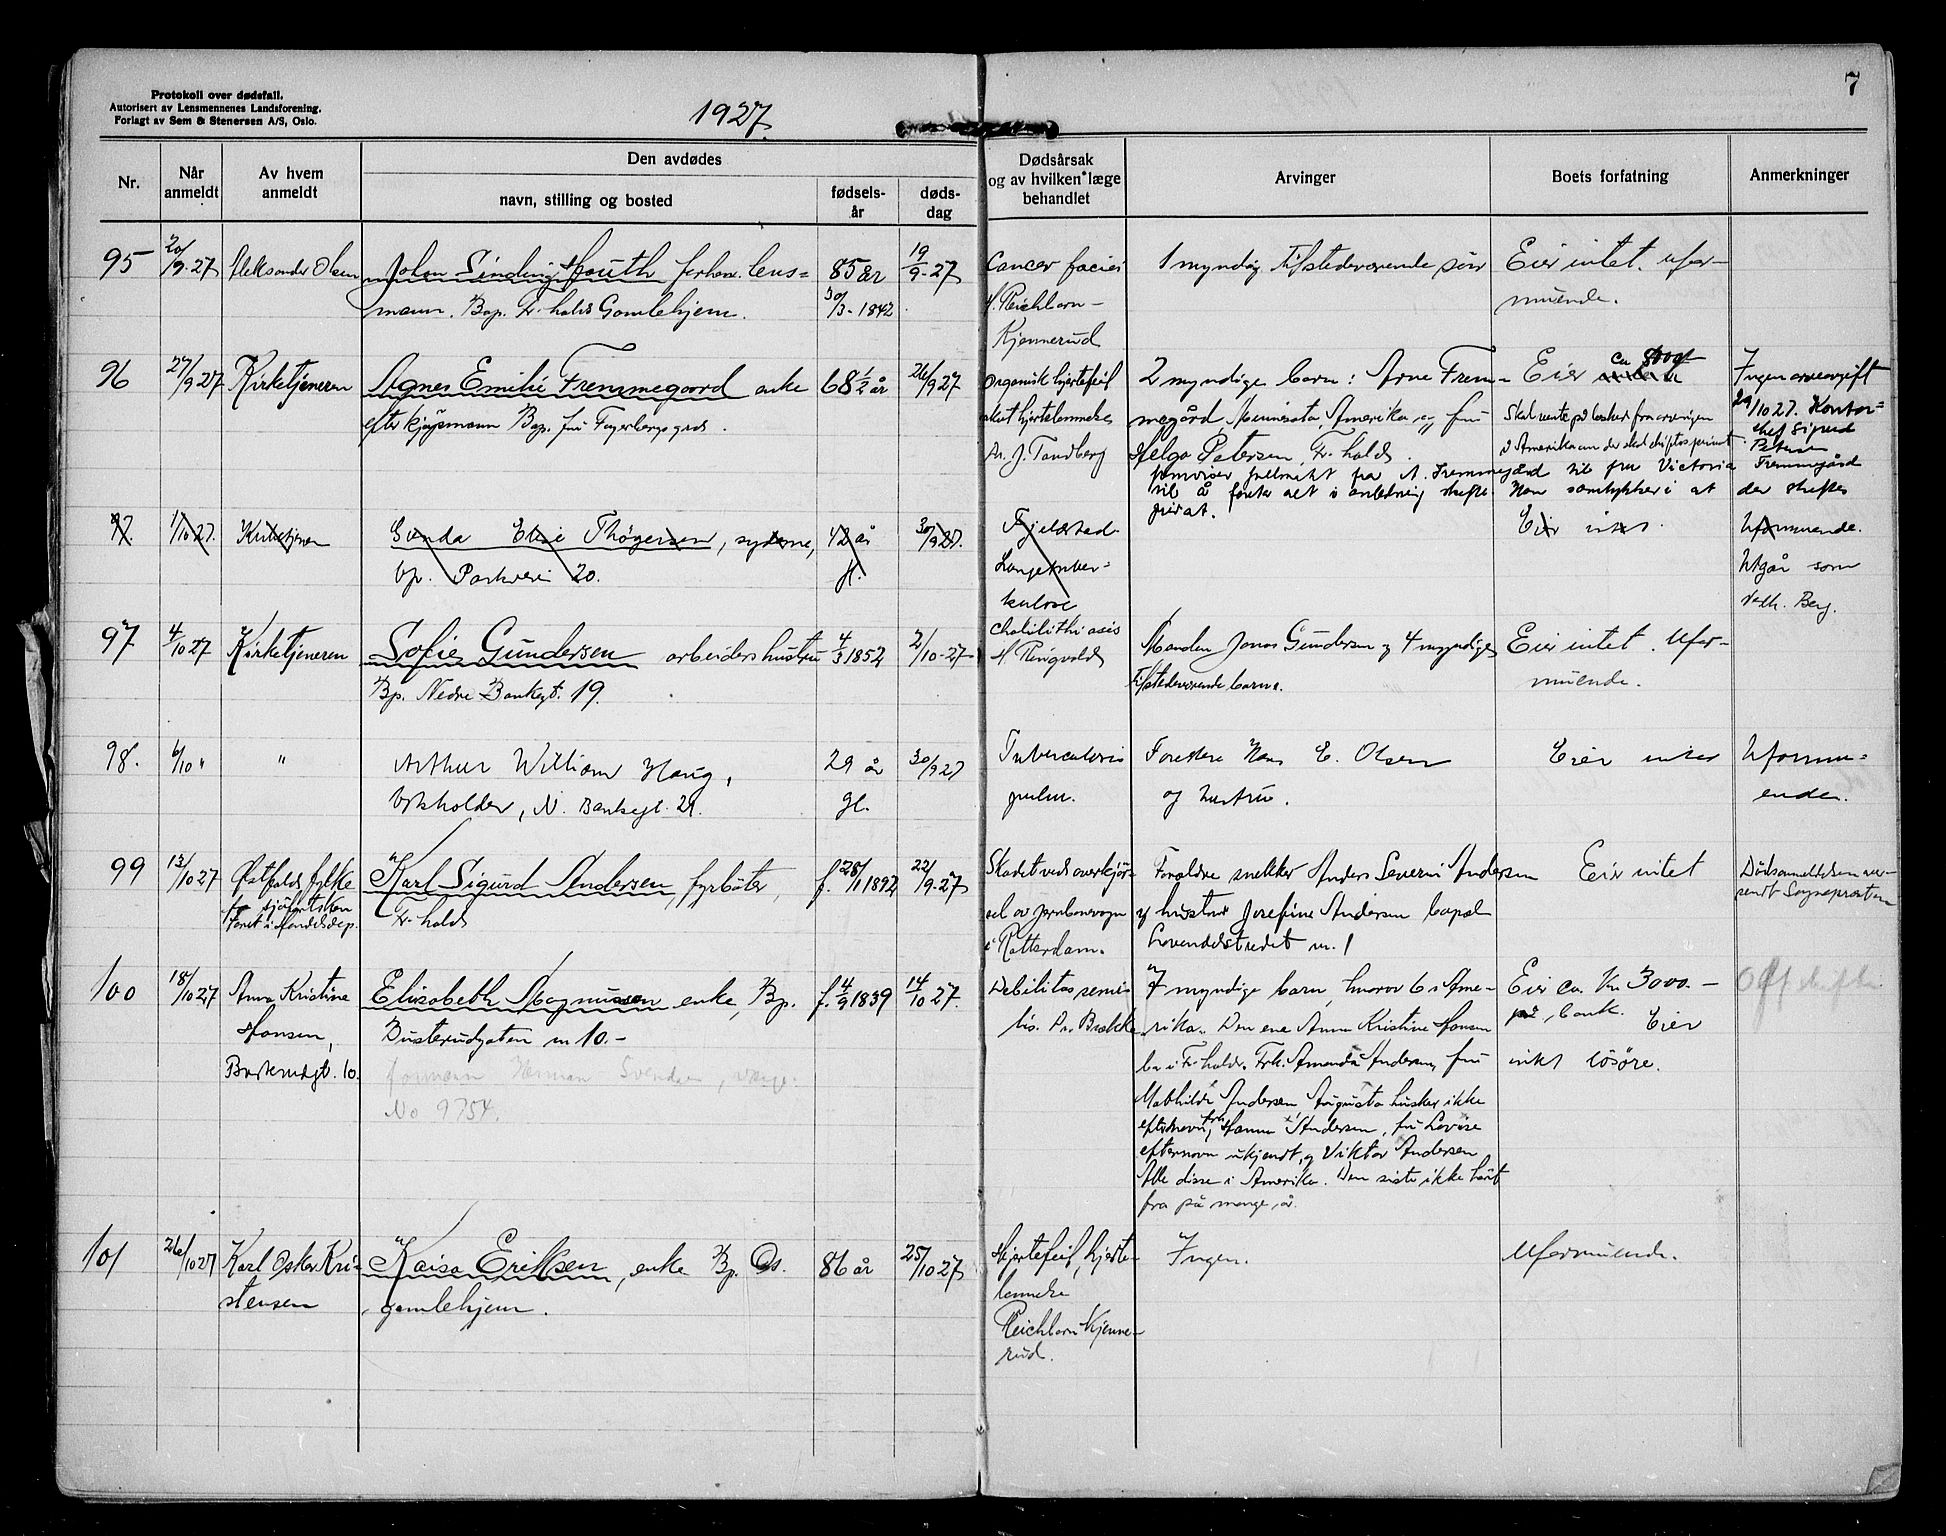 Protokoll over dødsfall.
Autorisert av Lensmennenes Landsforening.
Forlagt av Sem & Stenersen A/S, Oslo.
1927.
7
Nr.
Når anmeldt
Av hvem anmeldt
Den avdødes
navn, stilling og bosted
fødsels-år
døds-dag
Dødsårsak
og av hvilken læge
behandlet
Arvinger
Boets forfatning
Anmerkninger
95
20/9-27
Aleksander Olsen
Johan Sinding Houth forhenv. lens=
mann. Bop. Fr.halds Gamlehjem.
85 år
30/3-1842
19/9-27
Cancer faciei
Reichborn-
Kjennerud
1 myndig tilstedeværende sön
Eier intet. Ufor-
muende.
96
27/9 27
Kirketjeneren
Agnes Emilie Fremmegaard enke
efter kjöpmann Bop. fru Fagerbergs gård.
68 1/2 år
26/9 27
Organisk hjertefeil
akut hjertelammelse
Dr. J. Tandberg
2 myndige barn: Arne Frem-
megård, Minnesota, Amerika og fru
Helga Petersen Fr.hald.
fremviser fullmakt fra A. Fremmegård til fru Victoria
til å foreta alt i anledning skifte.
privat.
Eier ca 800 kr
Skal vente på besked fra arvingen
i Amerika om der skal skiftes privat
Han samtykker i at
Ingen arveavgift
29/10 27. Kontor=
chef Sigurd
Petersen
Fremmegård
der skiftes
97.
1/10 27.
Kirketjener
Gunda Elise Thøgersen, syerske,
bp. Parkveien 20.
42 år
gl.
30/9 27.
Fjeldstad
Lungetuber-
kulose
Eier intet.
Uformuende.
Utgår som
vedk. Berg.
97
4/10 27
Kirketjeneren
Sofie Gundersen arbeiders hustru
Bp. Nedre Bankegt. 19.
4/3 1852
2/10-27-
Cholilithiasis
Ringvold
Manden Jonas Gundersen og 4 myndige
tilstedeværende barn.
Eier intet. Ufor-
muende.
98.
6/10 "
"
Arthur William Haug,
bokholder, N. Bankegt. 21.
29 år
gl.
30/9 27
Tuberculosis
pulm.
Foreldre Hans E. Olsen
og hustru.
Eier intet
Uformu=
ende.
99
13/10 27
Østfolds fylke
fra sjöfartskon
toret i Handelsdep.
Karl Sigurd Andersen, fyrböter,
Fr.hald
f. 28/1 1892
22/9-27
Skadet ved overkjör-
sel av jernbanevogn
i Rotterdam.
Foreldre snekker Anders Severin Andersen
og hustru Josefine Andersen bopæl
Lovendelstredet nr. 1
Eier intet
Dödsanmeldelsen over-
sendt Sogneprosten
100
18/10 27
Anna Kristine
Hansen,
Busterudgt. 10.
Elisabeth Magnussen enke, Bp.
Busterudgaten nr 10.-
formann Herman Svendsen, verge.
No 9754.
f. 4/9 1839
14/10 27.
Debilitas seni-
lis. Dr. Brække
7 myndige barn, hvorav 6 i Ame-
rika. Den ene Anna Kristine Hansen
bor i Fr.hald. Frk. Amanda Andersen, fru
Mathilde Andersen Augusta husker ikke
efternavn, frk Hanna Andersen, fru Lovise
efternavn ukjendt, og Viktor Andersen
Alle disse i Amerika. Den siste ikke hört
fra på mange år.
Eier ca. Kr. 3000.-
på bank. Eier
intet lösöre.
Off skifte.
101
26/10 27
Karl Oskar Kri-
stensen
Kaisa Eriksen, enke Bp. Os.
gamlehjem.
86 år
25/10 27
Hjertefeil, hjerte-
lammelse
Reichborn Kjenne-
rud.
Ingen.
Uformuende.